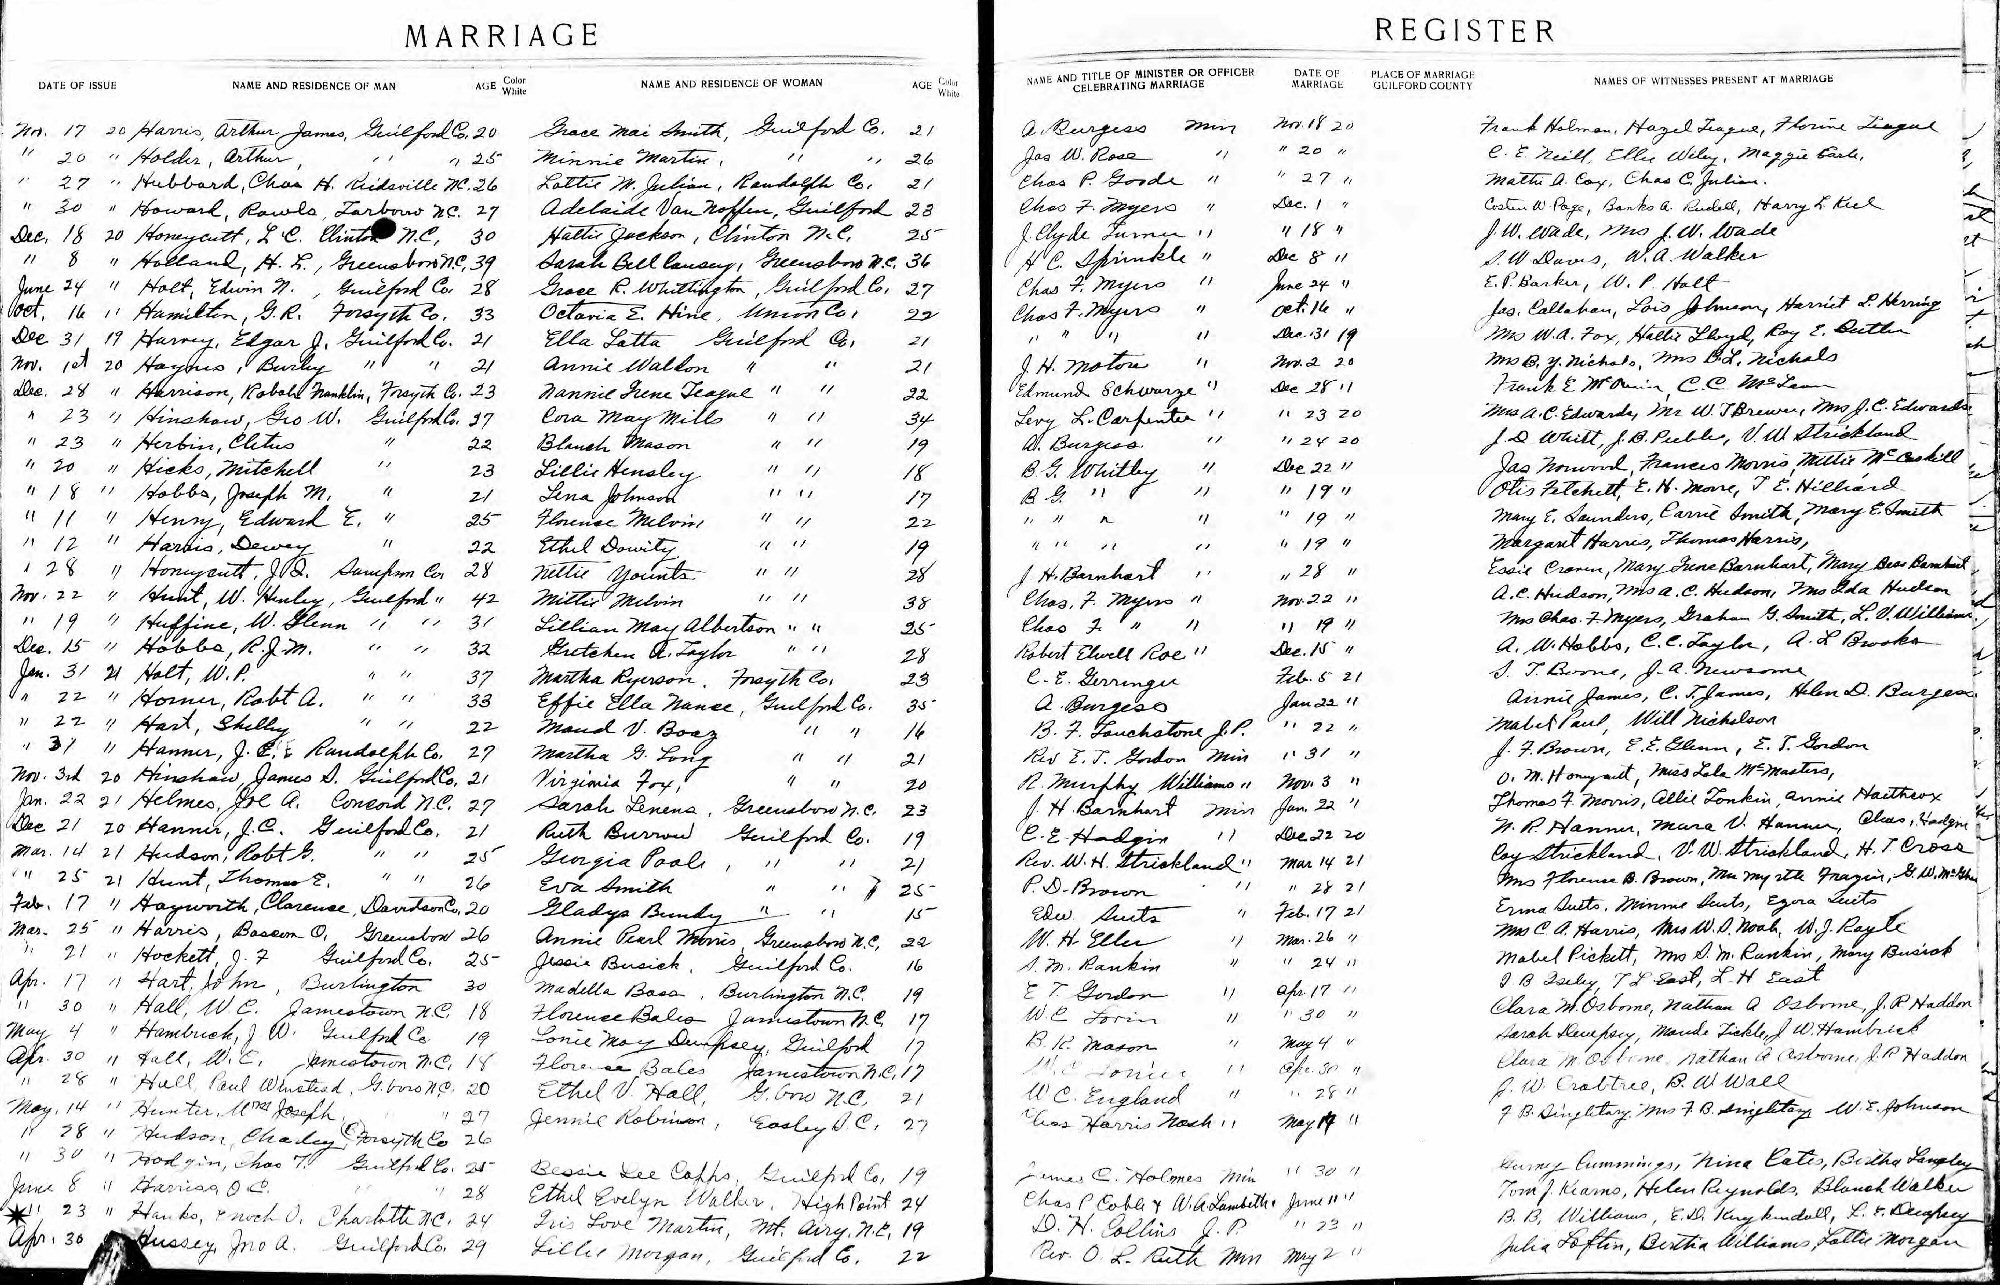 MARRIAGE REGISTER
DATE OF ISSUE NAME AND RESIDENCE OF MAN AGE Color White NAME AND RESIDENCE OF WOMAN AGE Color White NAME AND TITLE OF MINISTER OR OFFICER CELEBRATING MARRIAGE DATE OF MARRIAGE PLACE OF MARRIAGE GUILFORD COUNTY NAMES OF WITNESSES PRESENT AT MARRIAGE
Nov. 17 20 Harris, Arthur James, Guilford Co. 20 Grace Mai Smith, Guilford Co. 21 A. Burgess Min Nov. 18 20 Frank Holman, Hazel Teague, Florine Teague
" 20 " Holder, Arthur, " " 25 Minnie Martin, " " 26 Jas W. Rose " " 20 " C. E. Neill, Ellie Wiley, Maggie
" 27 " Hubbard, Chas H. Reidsville N.C. 26 Lottie M. Julian, Randolph Co. 21 Chas P. Goode " " 27 " Mattie A. Cox, Chas C. Julian.
" 30 " Howard, Rawls, Tarboro N.C. 27 Adelaide Van Noppen, Guilford 23 Chas F. Myers " Dec. 1 " Costen W. Page, Banks A. Harry L.
Dec. 18 20 Honeycutt, L. C. Clinton N.C, 30 Hattie Jackson, Clinton N.C. 25 J. Clyde Turner " " 18 " J. W. Wade, Mrs J. W. Wade
" 8 " Holland, H. L., Greensboro N.C. 39 Sarah Bell Causey, Greensboro N.C. 36 H C. Sprinkle " Dec 8 " S. W Davis, W. A. Walker
June 24 " Holt, Edwin N., Guilford Co. 28 Grace R. Whittington, Guilford Co. 27 Chas F. Myers " June 24 " E. P. Barker, W. P. Holt
Oct. 16 " Hamilton, G. R. Forsyth Co. 33 Octavia E. Hine, Union Co. 22 Chas F. Myers " Oct. 16 " Jas. Callahan, Lois Johnson, Harriet L. Herring
Dec 31 19 Harvey, Edgar J. Guilford Co. 21 Ella Latta Guilford Co. 21 " " " " Dec. 31 19 Mrs W. A. Fox, Hallie Lloyd, Roy E.
Nov. 1st 20 Haynes, Burley " " 21 Annie Waldon " " 21 J. H. Motore " Nov. 2 20 Mrs B. Y. Nichols, Mrs B. L. Nichols
Dec. 28 " Harrison, Franklin, Forsyth Co. 23 Nannie Irene Teague " " 22 Edmund Schwarze " Dec 28 " Frank E. C. C. McLean
" 23 " Hinshaw, Geo W. Guilford Co. 37 Cora May Mills " " 34 Levy L. Carpenter " " 23 20 Mrs A. C. Edwards, Mr W. T Brewer, Mrs J. C. Edwards
" 23 " Herbin, Cletus " 22 Blanch Mason " " 19 A. Burgess " " 24 20 J. D Whitt, J. B. Peebles, V. W Strickland
" 20 " Hicks, Mitchell " 23 Lillie Hensley " " 18 B. G. Whitley " Dec 22 " Jas Norwood, Frances Morris, Mittie McCaskill
" 18 " Hobbs, Joseph M. " 21 Lena Johnson " " 17 B G. " " " 19 " Otis Fetchett, E. H. Morre, T E. Hilliard
" 11 " Henry, Edward E. " 25 Florence Melvin " " 22 " " " " " 19 " Mary E. Saunders, Carrie Smith, Mary E. Smith
" 12 " Harris, Dewey " 22 Ethel Dowity " " 19 " " " " " 19 " Margaret Harris, Thomas Harris,
" 28 " Honeycutt, J. D. Sampson Co. 28 Nettie Younts " " 28 J. H. Barnhart " " 28 " Essie Craven, Mary Irene Barnhart, Mary Bess Barnhart
Nov. 22 " Hunt, W. Henley, Guilford " 42 Mittie Melvin " " 38 Chas. F. Myers " Nov. 22 " A. C. Hudson, Mrs A. C. Hudson, Mrs Ida Hudson
" 19 " Huffine, W. Glenn " " 31 Lillian May Albertson " " 25 Chas F. " " " 19 " Mrs Chas. F. Myers, Graham G. Smith, L. V. Williams
Dec. 15 " Hobbs, R. J. M. " " 32 Gretchen A. Taylor " " 28 Robert Elwell Roe " Dec. 15 " A. W. Hobbs, C. C. Taylor, A. L Brooks
Jan. 31 21 Holt, W. P. " " 37 Martha Ryerson, Forsyth Co. 23 C. E. Gerringer Feb. 5 21 S. T. Boone, J. A. Newsome
" 22 " Horner, Robt A. " " 33 Effie Ella Nance, Guilford Co. 35 A. Burgess Jan 22 " Annie James, C. T. James, Helen D. Burgess
" 22 " Hart, Shelly " " 22 Maud V. Boaz " " 16 B. F. Touchstone J. P. " 22 " Mabel Paul, Will Nicholson
" 31 " Hanner, J. C. Randolph Co. 27 Martha G. Long " " 21 Rev E. T. Gordon Min " 31 " J. F. Brown, E. E. Glenn, E. T. Gordon
Nov. 3rd 20 Hinshaw, James S. Guilford Co. 21 Virginia Fox, " " 20 R. Murphy Williams " Nov. 3 " O. M. Honeycutt, Miss Lela McMasters,
Jan. 22 21 Helmes, Joe A. Concord N.C. 27 Sarah Lenens, Greensboro N.C. 23 J. H Barnhart Min Jan. 22 " Thomas F. Morris, Allie Tonkin, Annie Haithcox
Dec 21 20 Hanner, J. C. Guilford Co. 21 Ruth Burrow Guilford Co. 19 C. E. Hodgin " Dec 22 20 N. R. Hanner, Mara V. Hanner, Chas. Hodgin
Mar. 14 21 Hudson, Robt G. " " 25 Georgia Poole, " " 21 Rev. W. H. Strickland " Mar 14 21 Coy Strickland, V. W. Strickland, H. T. Cross
" 25 21 Hunt, Thomas E. " " 26 Eva Smith " " 25 P. D. Brown " " 28 21 Mrs Florence B. Brown, Mrs Myrtle Frazier, G. W.
Feb. 17 " Hayworth, Clarence, Davidson Co. 20 Gladys Bundy " " 15 Edw. Suits " Feb. 17 21 Erma Suits, Minnie Suits, Egora Suits
Mar. 25 " Harris, Bascom O. Greensboro 26 Annie Pearl Morris, Greensboro N.C. 22 W. H Eller " Mar. 26 " Mrs C. A. Harris, Mrs W. S. Noah, W. J. Rayle
" 21 " Hockett, J. F Guilford Co. 25 Jessie Busick, Guilford Co. 16 S. M. Rankin " " 24 " Mabel Pickett, Mrs S. M. Rankin, Mary Busick
Apr. 17 " Hart, John, Burlington 30 Madella Bass, Burlington N.C. 19 E T. Gordon " Apr. 17 " I B Isley, T L East, L. H East
" 30 " Hall, W C. Jamestown N.C. 18 Florence Bales Jamestown N.C. 17 W. E " " 30 " Clara M. Osborne, Nathan A Osborne, J. R Haddon
May 4 " Hambrick, J W. Guilford Co 19 Lonie May Dempsey, Guilford 17 B. K. Mason " May 4 " Sarah Dempsey, Maude Tickle, J. W. Hambrick
Apr. 30 " Hall, W. C. Jamestown N.C. 18 Florence Bales Jamestown N.C. 17 " Apr. 30 " Clara M Osborne, Nathan A Osborne, J. R Haddon
" 28 " Hall, Paul Winstead, G. boro N.C. 20 Ethel V. Hall, G. boro N.C. 21 W C. England " " 28 " J. W. Crabtree, B. W Wall
May. 14 " Hunter, Joseph, " " 27 Jennie Robinson, Easley S. C. 27 Chas Harris Nash " May 14 " F B. Singletary, Mrs F. B. Singletary W. E. Johnson
" 28 " Hudson, Charley, Forsyth Co 26
" 30 " Hodgin, Chas T. Guilford Co. 25 Bessie Lee Capps, Guilford Co, 19 James C. Holmes Min " 30 " Gurney Cummings, Nina Cates, Bertha Langley
June 8 " Harriss O C. " " 28 Ethel Evelyn Walker, High Point 24 Chas P. Coble & W. A. Lambeth June 11 " Tom J. Kearns, Helen Reynolds, Blanch Walker
" 23 " Hanks, Enoch O. Charlotte N.C. 24 Iris Love Martin, Mt. Airy, N.C. 19 D. H. Collins J. P " 23 " B. B. Williams, E. D. Kuykendall, L. E. Dempsey
Apr. 30 Hussey, Jno A. Guilford Co. 29 Lillie Morgan, Guilford Co. 22 Rev. O. L. Ruth Min May 2 " Julia Loftin, Bertha Williams, Lottie Morgan